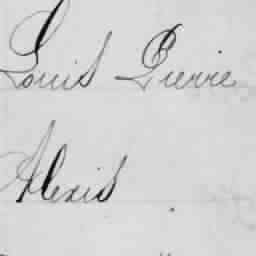 Louis Pierre
Alexis